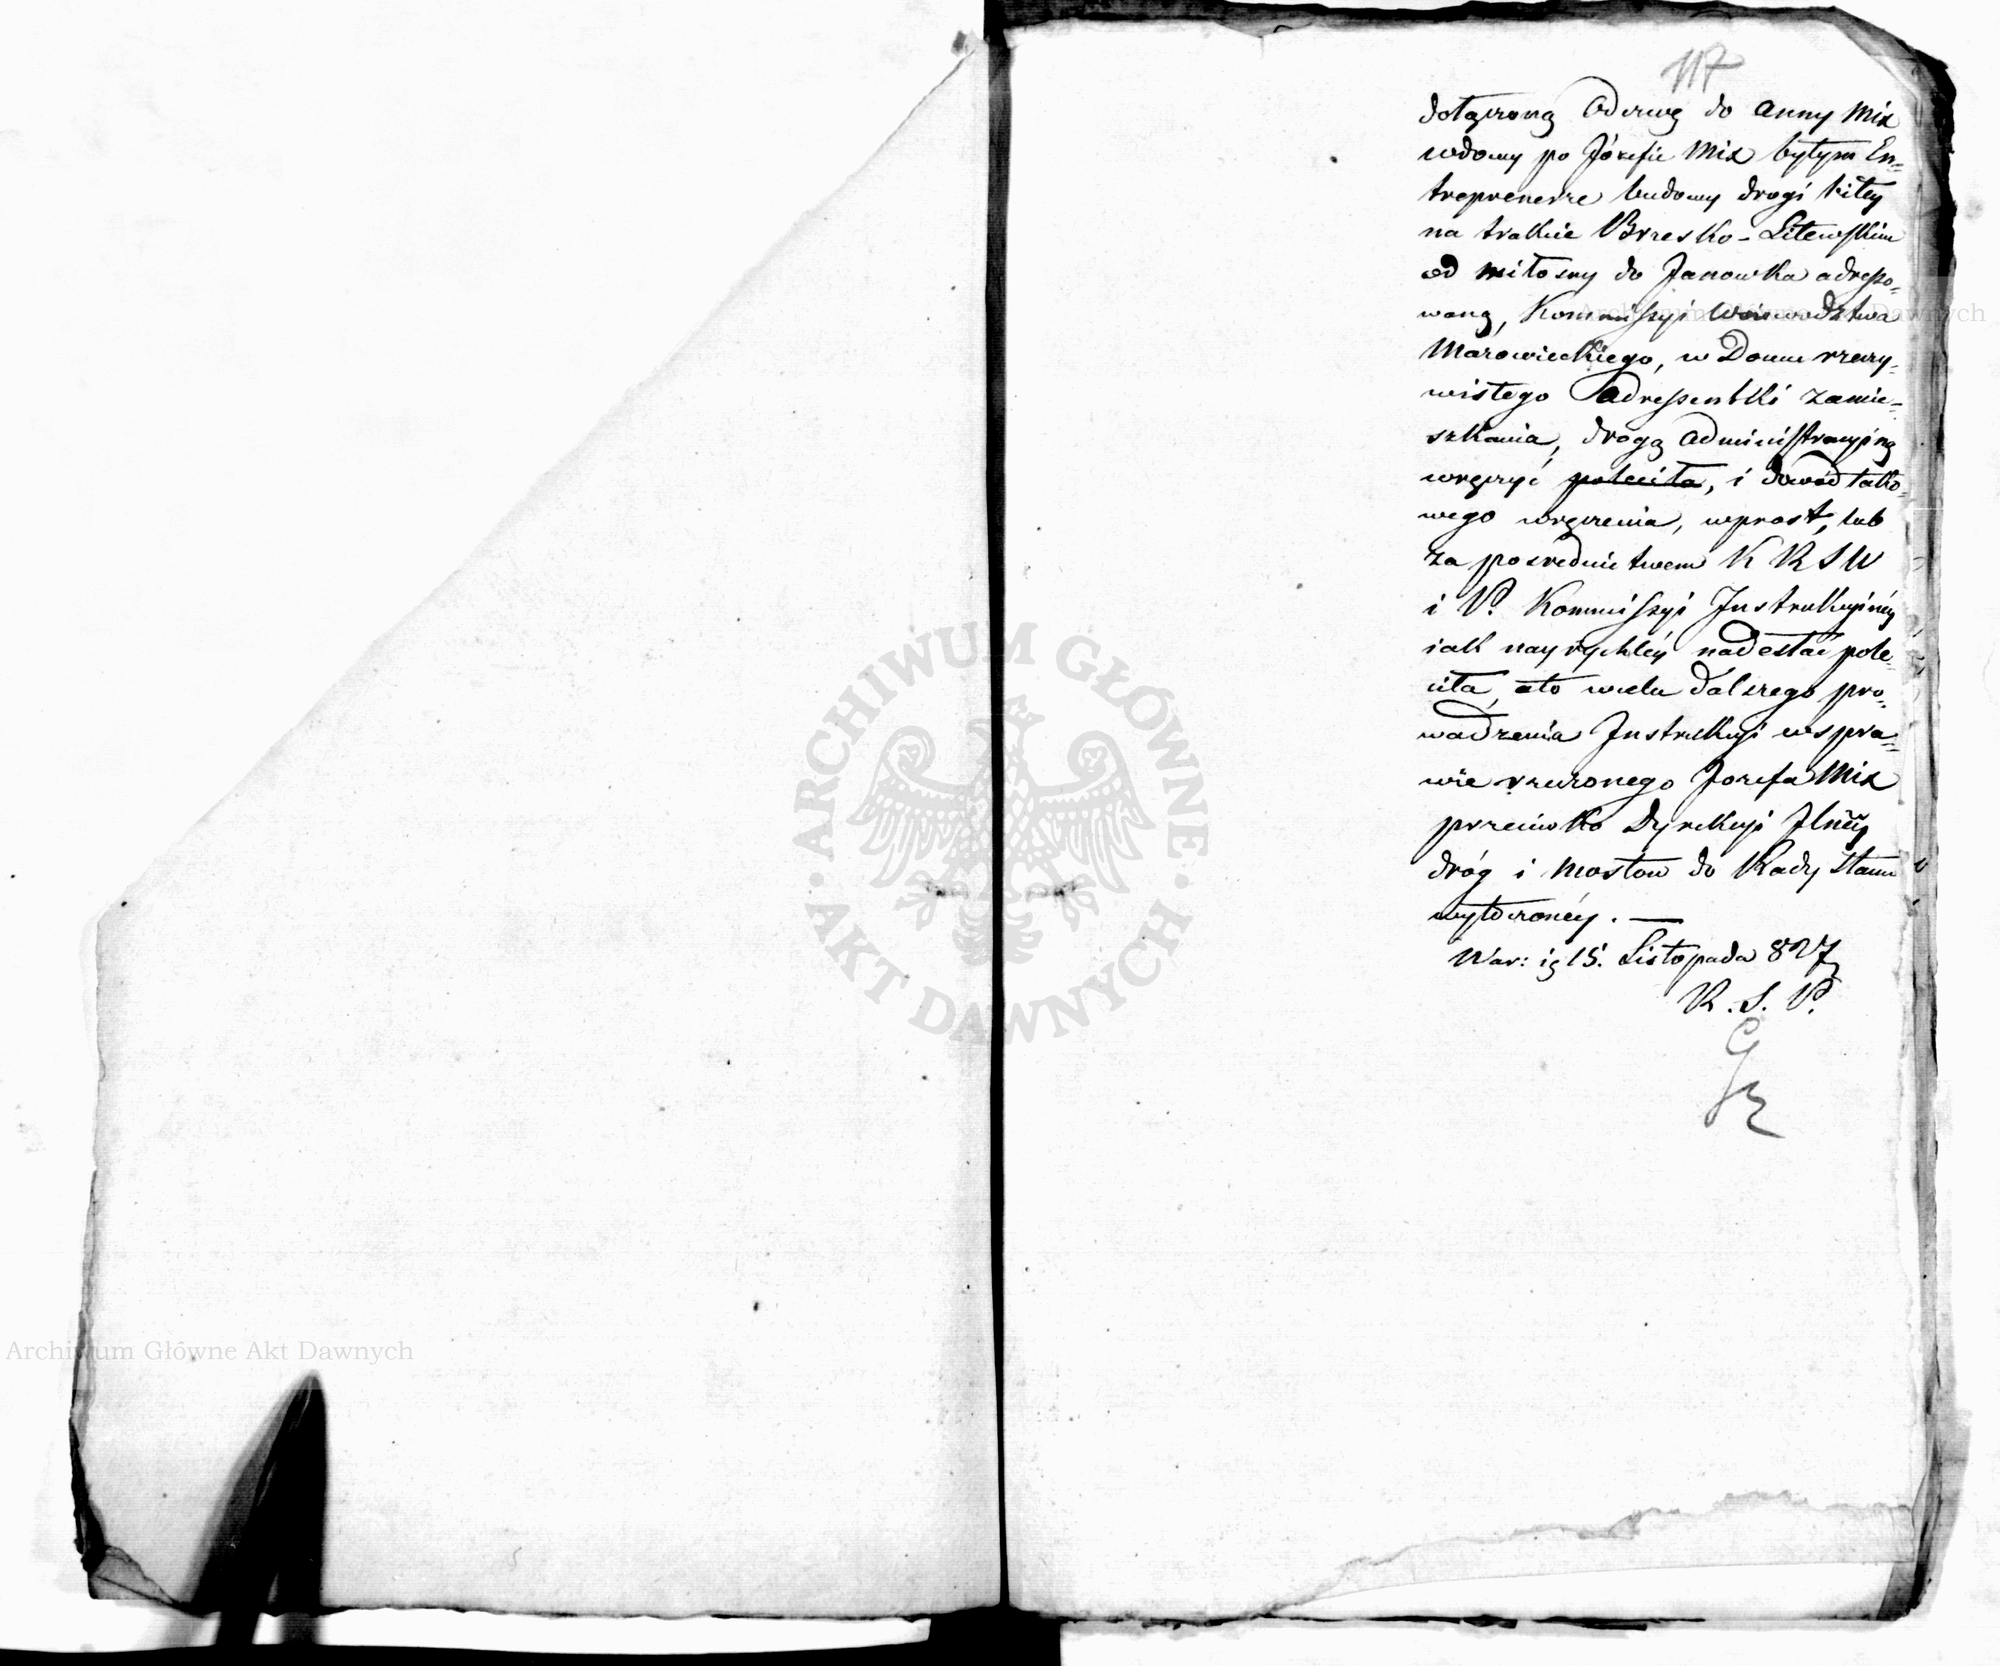 117
dołączoną Odezwę do Anny Mix
wdowy po Józefie Mix byłym En-
treprenerze budowy drogi bitey
na trakcie Brzesko-Litewskim
od Miłosny do Janowka adresso-
waną, Kommissyi Woiewodztwa
Mazowieckiego, w Domu rzeczy-
wistego Adressentki zamie-
szkania, drogą Administracyiną
wręczyć poleciła, i dowód tako-
wego wręczenia, wprost, lub
za posrednictwem K R S W
i P. Kommissyi Instrukcyinéy
iak nayrychléy nadesłać pole-
ciła, a to w celu dalszego pro-
wadzenia Instrukcyi w spra-
wie rzeczonego Jozefa Mix
przeciwko Dyrekcyi Jlnéy
dróg i Mostow do Rady Stanu
wytoczonéy. —
War: 15. Listopada 827
R. S. P.
ARCHIWUM GŁÓWNE
AKT DAWNYCH
Archiwum Główne Akt Dawnych
Archiwum Główne Akt Dawnych